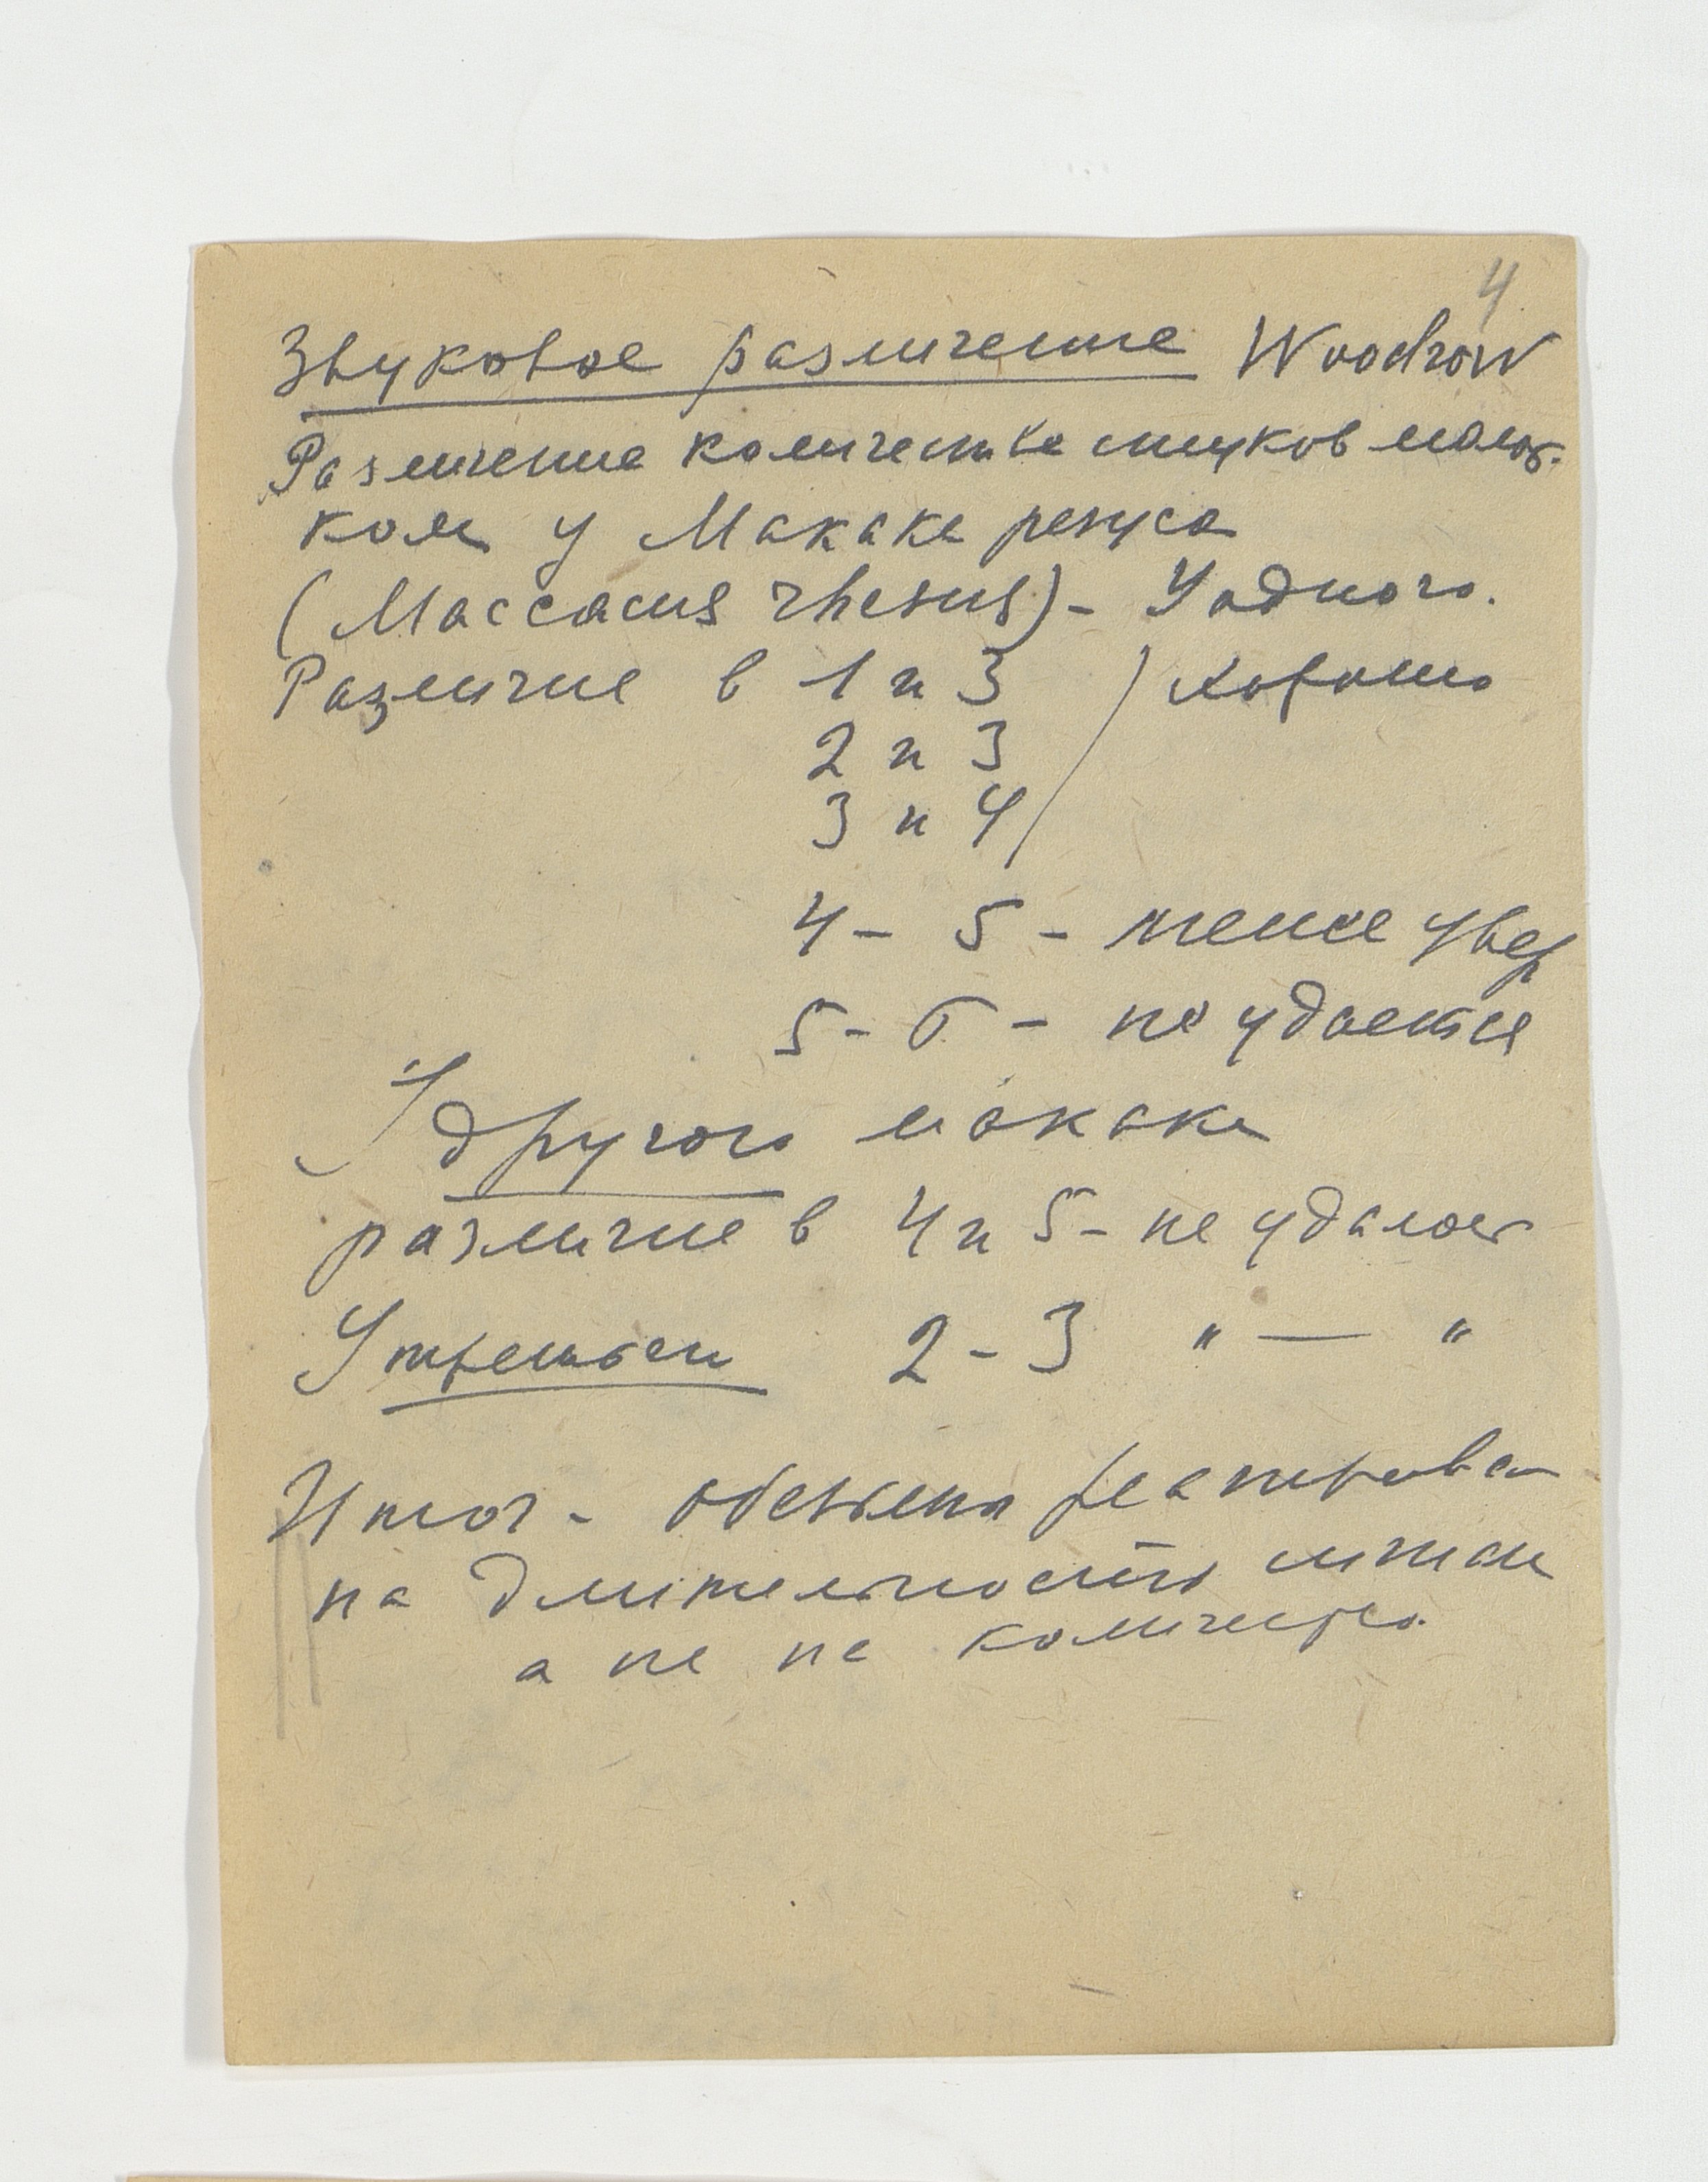 4
Звуковое различение Woodrow
Различение количества стуков молот-
ком у Макака резуса
(Maccacus rhesus) - У одного.
Различие в 1 и 3 ) хорошо
2 и 3
3 и 4
4 - 5 - менее увер
5 - 6 - не удается
У другого макака
различие в 4 и 5 - не удалось
У третьей 2 - 3 " — "
Итог - обезьяна реагировал
на длительность
а не на количество